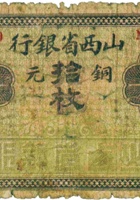 山西省銀行
銅元
拾枚